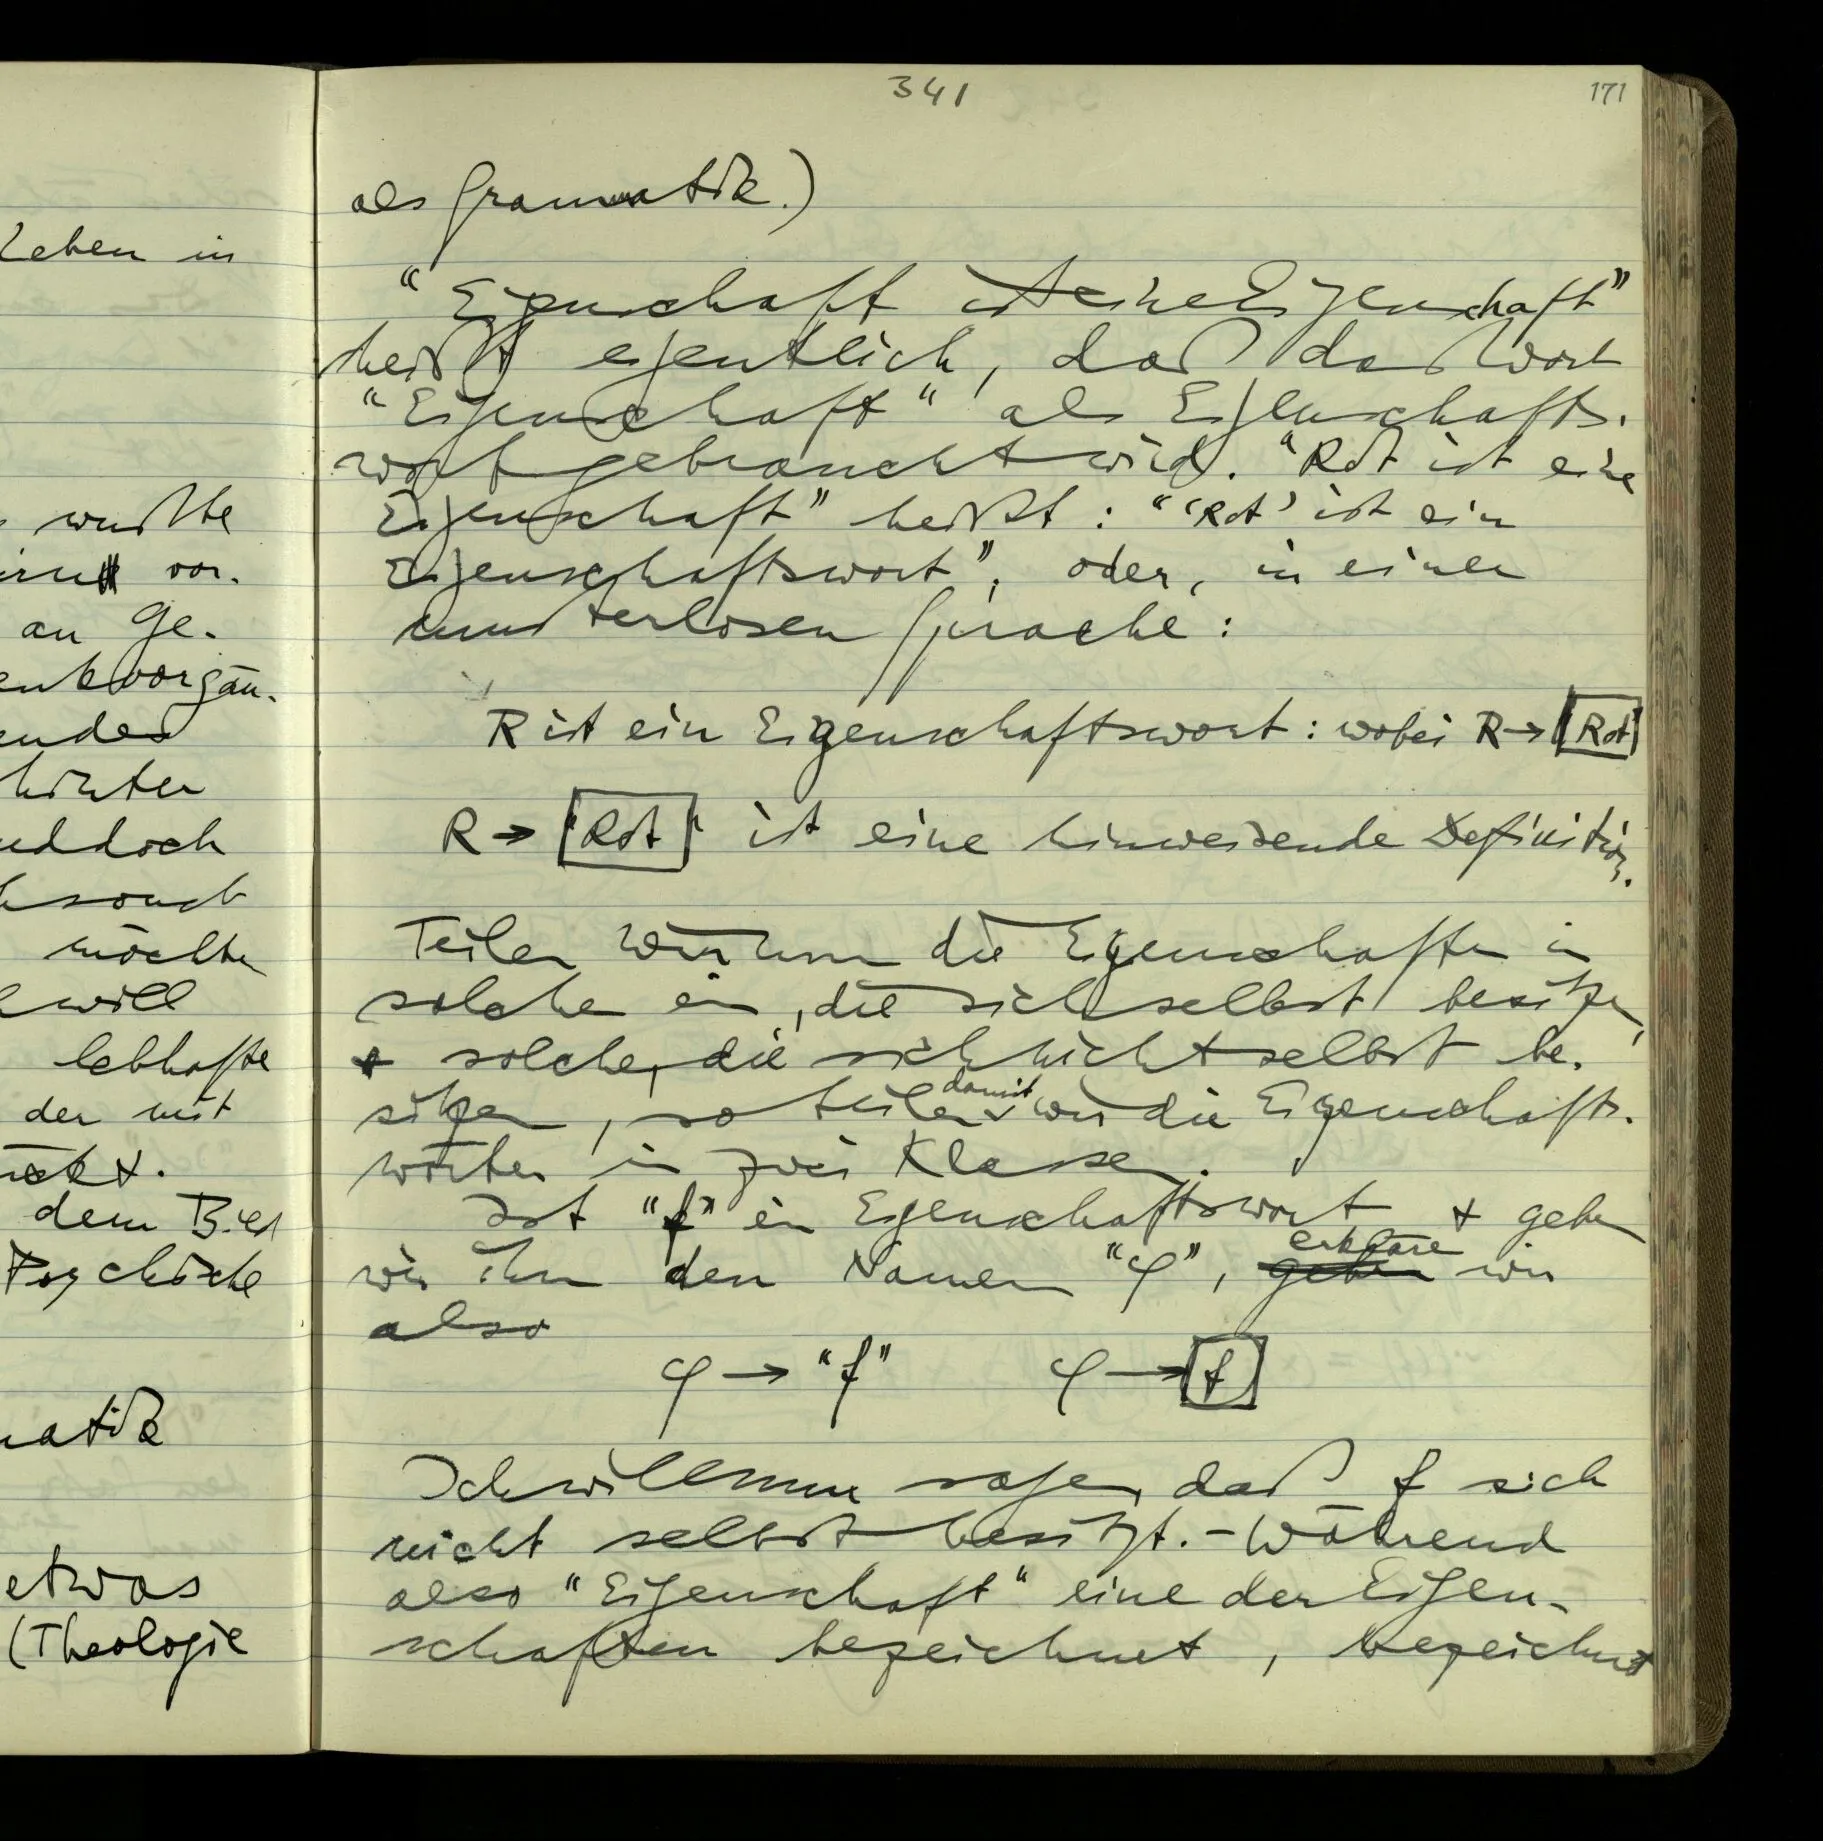 Leben in
wußte
vor.
an Ge-
enkvorgän-
endes
hinter
und doch
möchte
will
lebhafte
der mit
ückt.
dem Bild
Psychische
matik
etwas
(Theologie
341
171
als Grammatik.)
"Eigenschaft ist eine Eigenschaft"
heißt eigentlich, daß das Wort
"Eigenschaft" als Eigenschafts-
wort gebraucht wird. "Rot ist eine
Eigenschaft" heißt: "'Rot' ist ein
Eigenschaftswort", oder, in einer
musterlosen Sprache:
R ist ein Eigenschaftswort: wobei R → Rot
R → "Rot" ist eine hinweisende Definition.
Teilen wir nun die Eigenschaften in
solche ein, die sich selbst besitzen,
+ solche, die sich nicht selbst be-
sitzen, so teilen damit wir die Eigenschafts-
wörter in zwei Klassen.
Ist "f" ein Eigenschaftswort + geben
wir ihm den Namen "φ", geben erkläre wir
also
φ → "f" φ → f
Ich will nun sagen, daß f sich
nicht selbst besitzt. – Während
also "Eigenschaft" eine der Eigen-
schaften bezeichnet, bezeichnet